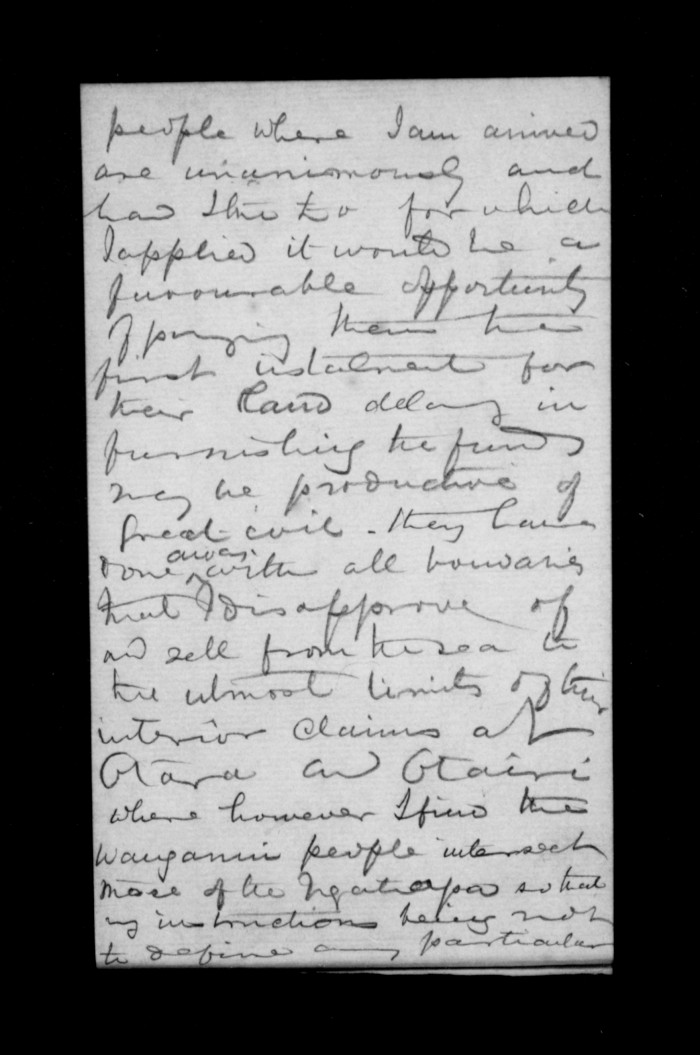 people where I am arrived
are unanimously and
had I the two for which
I applied it would be a
favourable opportunity
of paying them the
first instalment for
their land delay in
furnishing the funds
may be productive of
great evil - they have
done away with all boundaries
that I disapprove of
and sell from the sea to
the utmost limits of their
interior claims at
Otara and Otairi
where however I find the
Wanganui people intersect
those of the Ngatiapa so that
my instructions being not
to define any particular